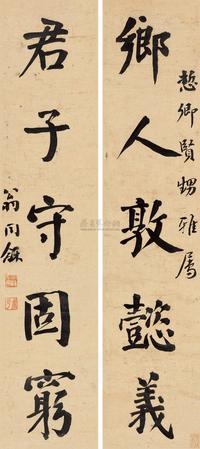 鄉人敦懿義
愁卿賢甥雅屬
君子守固窮
翁同龢